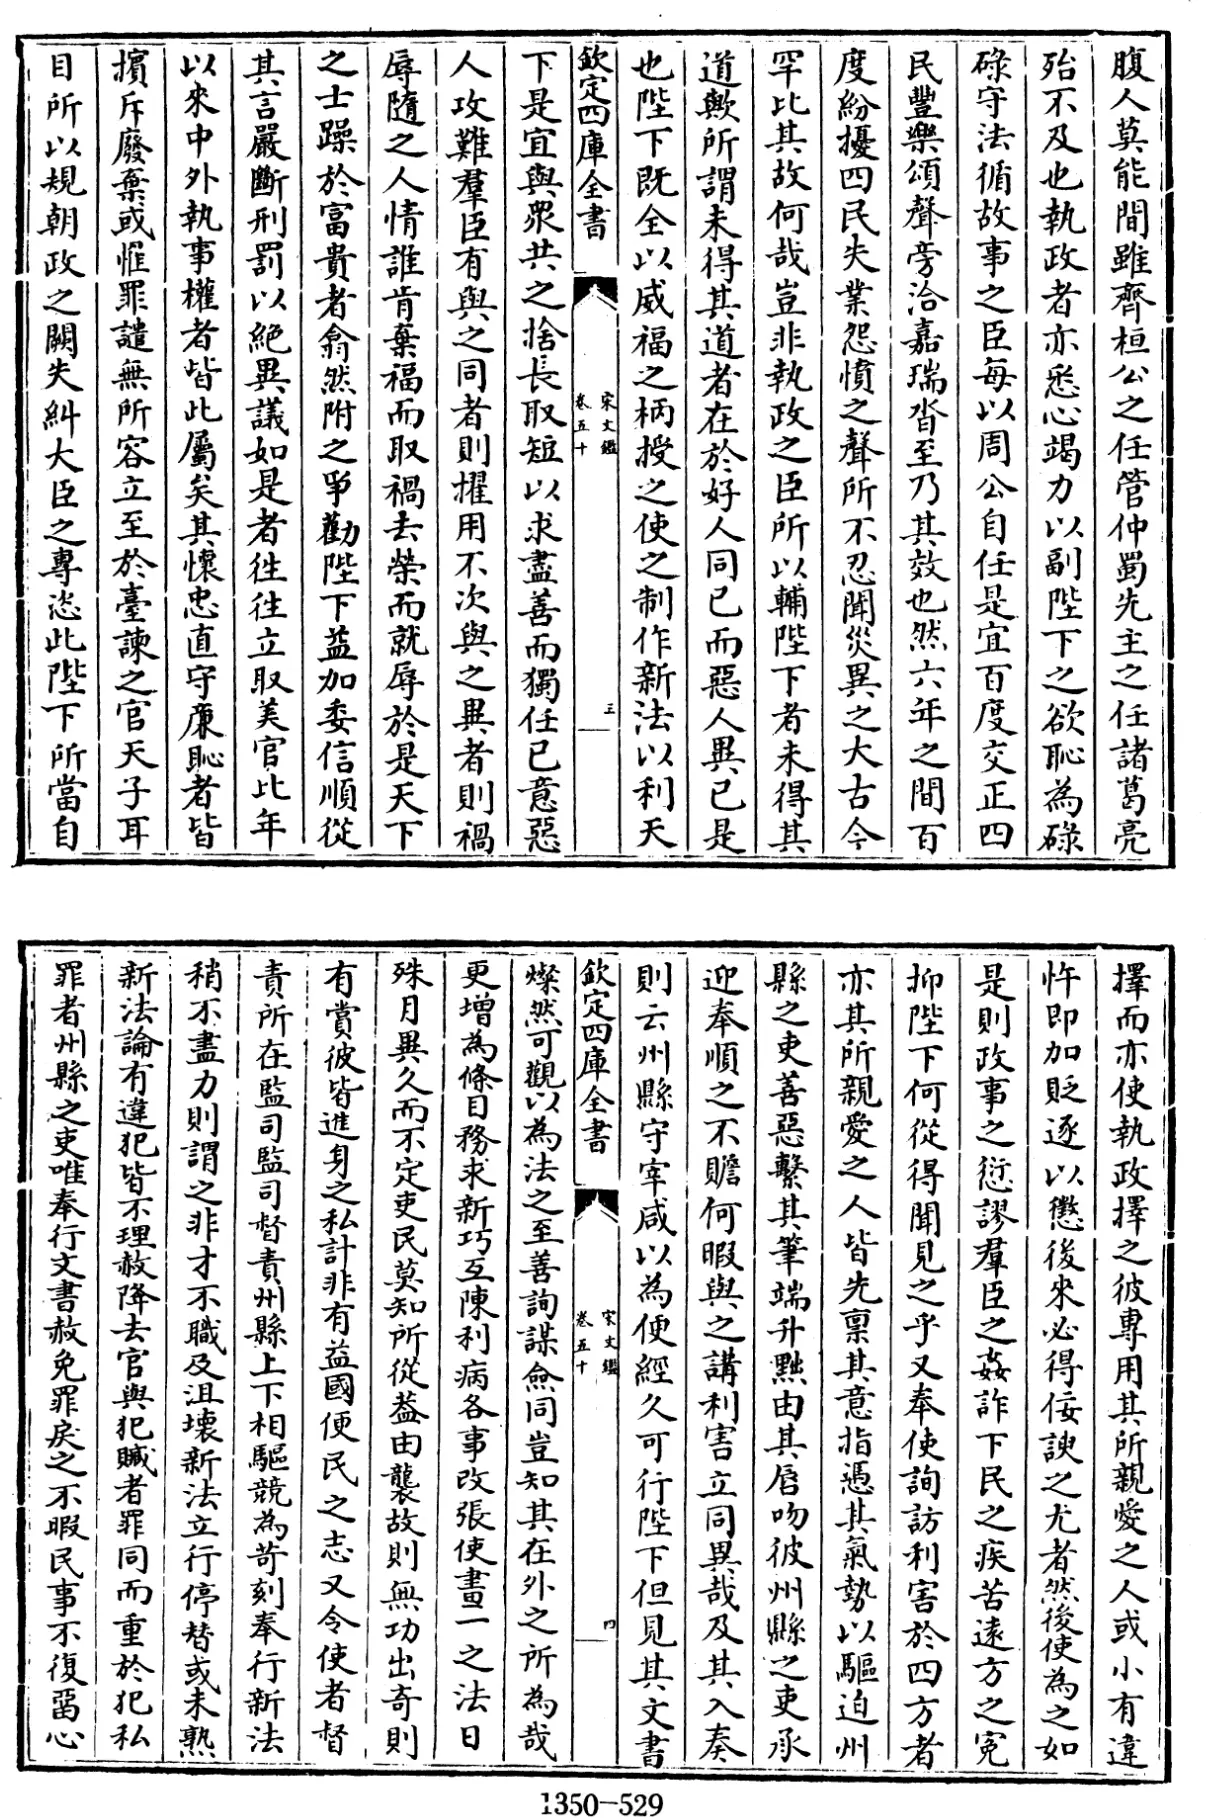 腹人莫能間雖齊桓公之任管仲蜀先主之任諸葛亮
殆不及也執政者亦悉心竭力以副陛下之欲恥為碌
碌守法循故事之臣每以周公自任是宜百度交正四
民豐樂頌聲旁洽嘉瑞沓至乃其效也然六年之間百
度紛擾四民失業怨憤之聲所不忍聞災異之大古今
罕比其故何哉豈非執政之臣所以輔陛下者未得其
道歟所謂未得其道者在於好人同已而惡人異已是
也陛下既全以威福之柄授之使之制作新法以利天
欽定四庫全書
宋文鑑
卷五十
三
下是宜與衆共之捨長取短以求盡善而獨任已意惡
人攻難羣臣有與之同者則擢用不次與之異者則禍
辱隨之人情誰肯棄福而取禍去榮而就辱於是天下
之士躁於富貴者翕然附之爭勸陛下益加委信順從
其言嚴斷刑罰以絶異議如是者徃徃立取美官比年
以來中外執事權者皆此屬矣其懷忠直守廉恥者皆
擯斥廢棄或惟罪譴無所容立至於臺諫之官天子耳
目所以規朝政之闕失糾大臣之專恣此陛下所當自
擇而亦使執政擇之彼專用其所親愛之人或小有違
忤即加貶逐以懲後來必得佞諛之尤者然後使為之如
是則政事之愆謬羣臣之姦詐下民之疾苦遠方之寃
抑陛下何從得聞見之乎又奉使詢訪利害於四方者
亦其所親愛之人皆先禀其意指憑其氣勢以驅迫州
縣之吏善惡繫其筆端升黜由其唇吻彼州縣之吏承
迎奉順之不贍何暇與之講利害立同異哉及其入奏
則云州縣守宰咸以為便經久可行陛下但見其文書
欽定四庫全書
宋文鑑
卷五十
四
燦然可觀以為法之至善詢謀僉同豈知其在外之所為哉
更增為條目務求新巧互陳利病各事改張使畫一之法日
殊月異久而不定吏民莫知所從葢由襲故則無功出奇則
有賞彼皆進身之私計非有益國便民之志又令使者督
責所在監司監司督責州縣上下相驅競為苛刻奉行新法
稍不盡力則謂之非才不職及沮壞新法立行停替或未熟
新法論有違犯皆不理赦降去官與犯贓者罪同而重於犯私
罪者州縣之吏唯奉行文書赦免罪戾之不暇民事不復畱心
1350-529